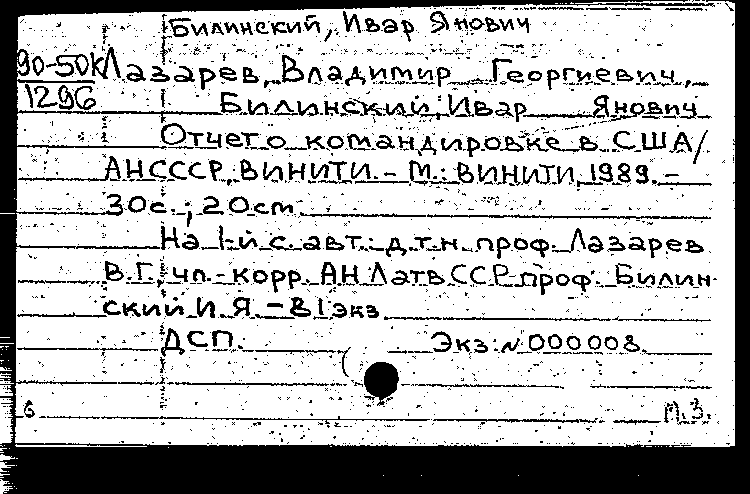 Билинский, Ивар Янович
90-50К Лазарев, Владимир Георгиевич,
1296 Билинский, Ивар Янович
Отчет о командировке в США/
АН СССР, ВИНИТИ. - М.: ВИНИТИ, 1989. -
30с.; 20cm.
На 1-й с. авт.: д.т.н. проф. Лазарев
В.Г., чл.-корр. АН Латв ССР проф. Билин-
ский И.Я. - В 1 экз.
ДСП. Экз. N 000008
6 М.З.